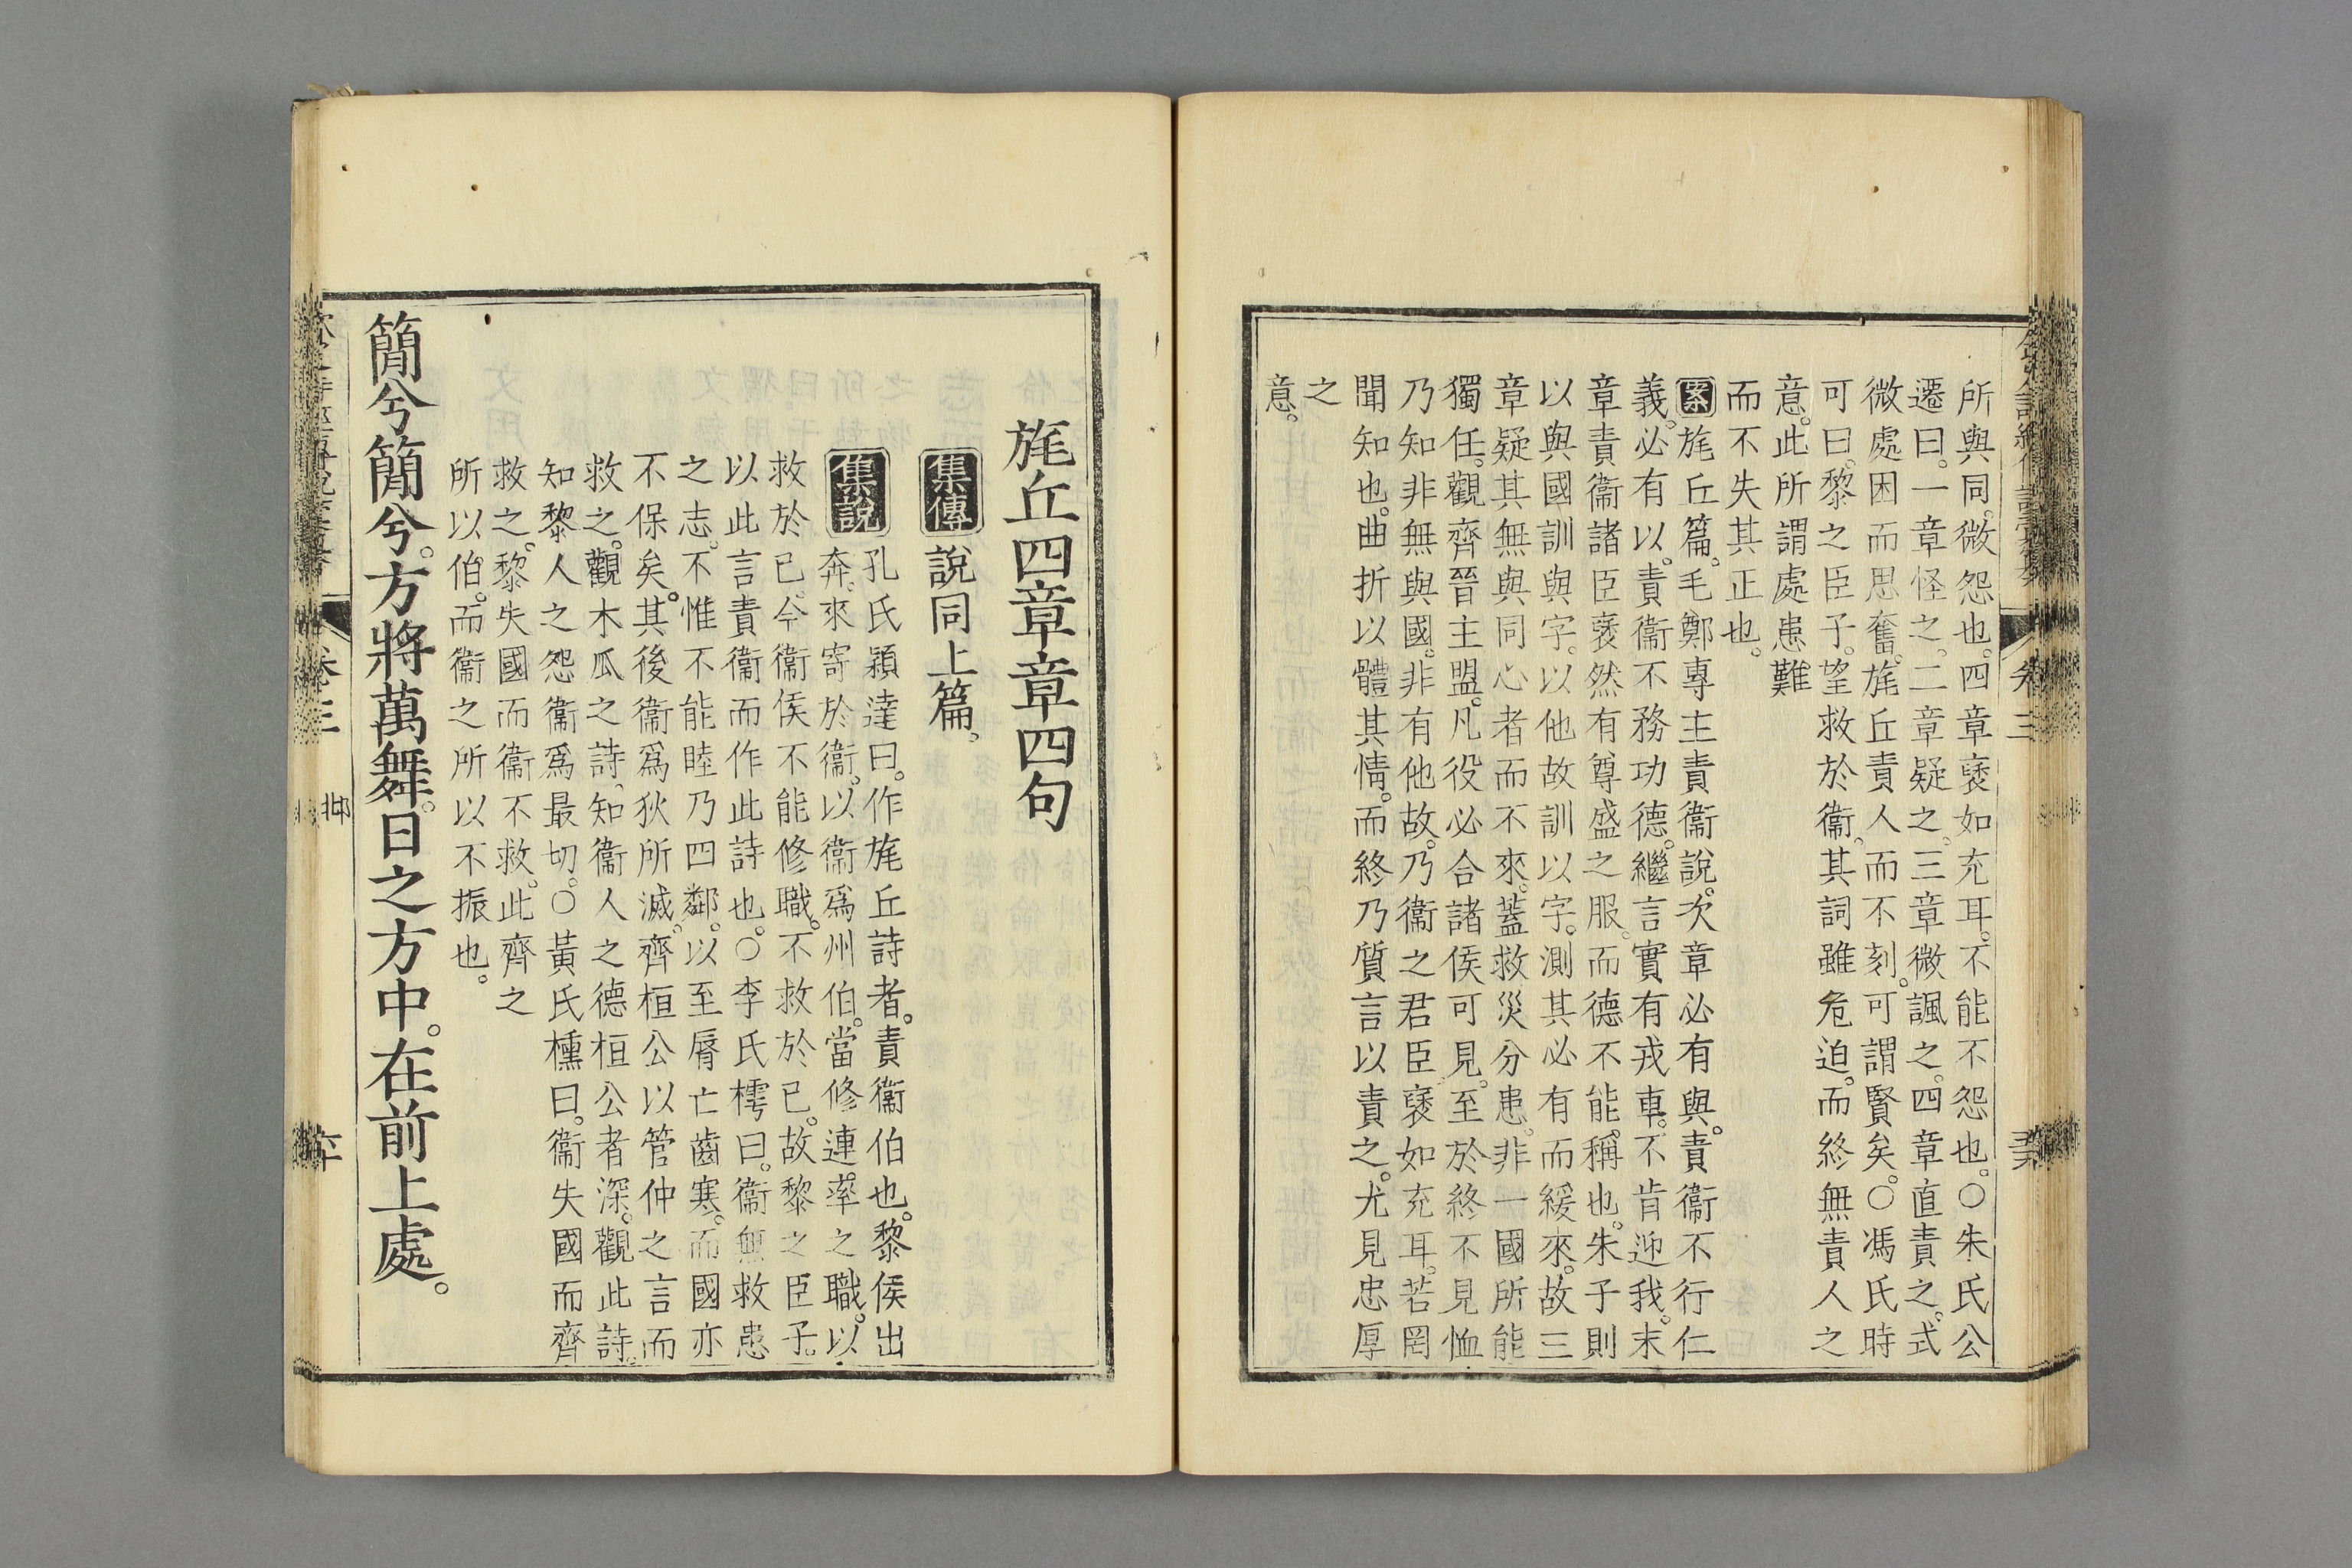 所與同。微怨也。四章襃如充耳。不能不怨也。○朱氏公
遷曰。一章怪之。二章疑之。三章微諷之。四章直責之。式
微處困而思奮。旄丘責人而不刻。可謂賢矣。○馮氏時
可曰。黎之臣子。望救於衞。其詞雖危迫。而終無責人之
意。此所謂處患難
而不失其正也。
案旄丘篇。毛鄭專主責衞說。次章必有與。責衞不行仁
義。必有以。責衞不務功德。繼言實有戎車。不肯迎我。末
章責衞諸臣襃然有尊盛之服。而德不能稱也。朱子則
以與國訓與字。以他故訓以字。測其必有而緩來。故三
章疑其無與同心者而不來。蓋救災分患。非一國所能
獨任。觀齊晉主盟。凡役必合諸侯可見。至於終不見恤
乃知非無與國。非有他故。乃衞之君臣襃如充耳。若罔
聞知也。曲折以體其情。而終乃質言以責之。尤見忠厚
之
意。
卷三
旄丘四章章四句
集傳 說同上篇。
集說 孔氏穎達曰。作旄丘詩者。責衞伯也。黎侯出
奔。來寄於衞。以衞爲州伯。當修連率之職。以
救於已。今衞侯不能修職。不救於已。故黎之臣子。
以此言責衞而作此詩也。○李氏樗曰。衞無救患
之志。不惟不能睦乃四鄰。以至脣亡齒寒。而國亦
不保矣。其後衞爲狄所滅。齊桓公以管仲之言而
救之。觀木瓜之詩。知衞人之德桓公者深。觀此詩。
知黎人之怨衞爲最切。○黃氏櫄曰。衞失國而齊
救之。黎失國而衞不救。此齊之
所以伯。而衞之所以不振也。
簡兮簡兮。方將萬舞。日之方中。在前上處。
卷三 邶